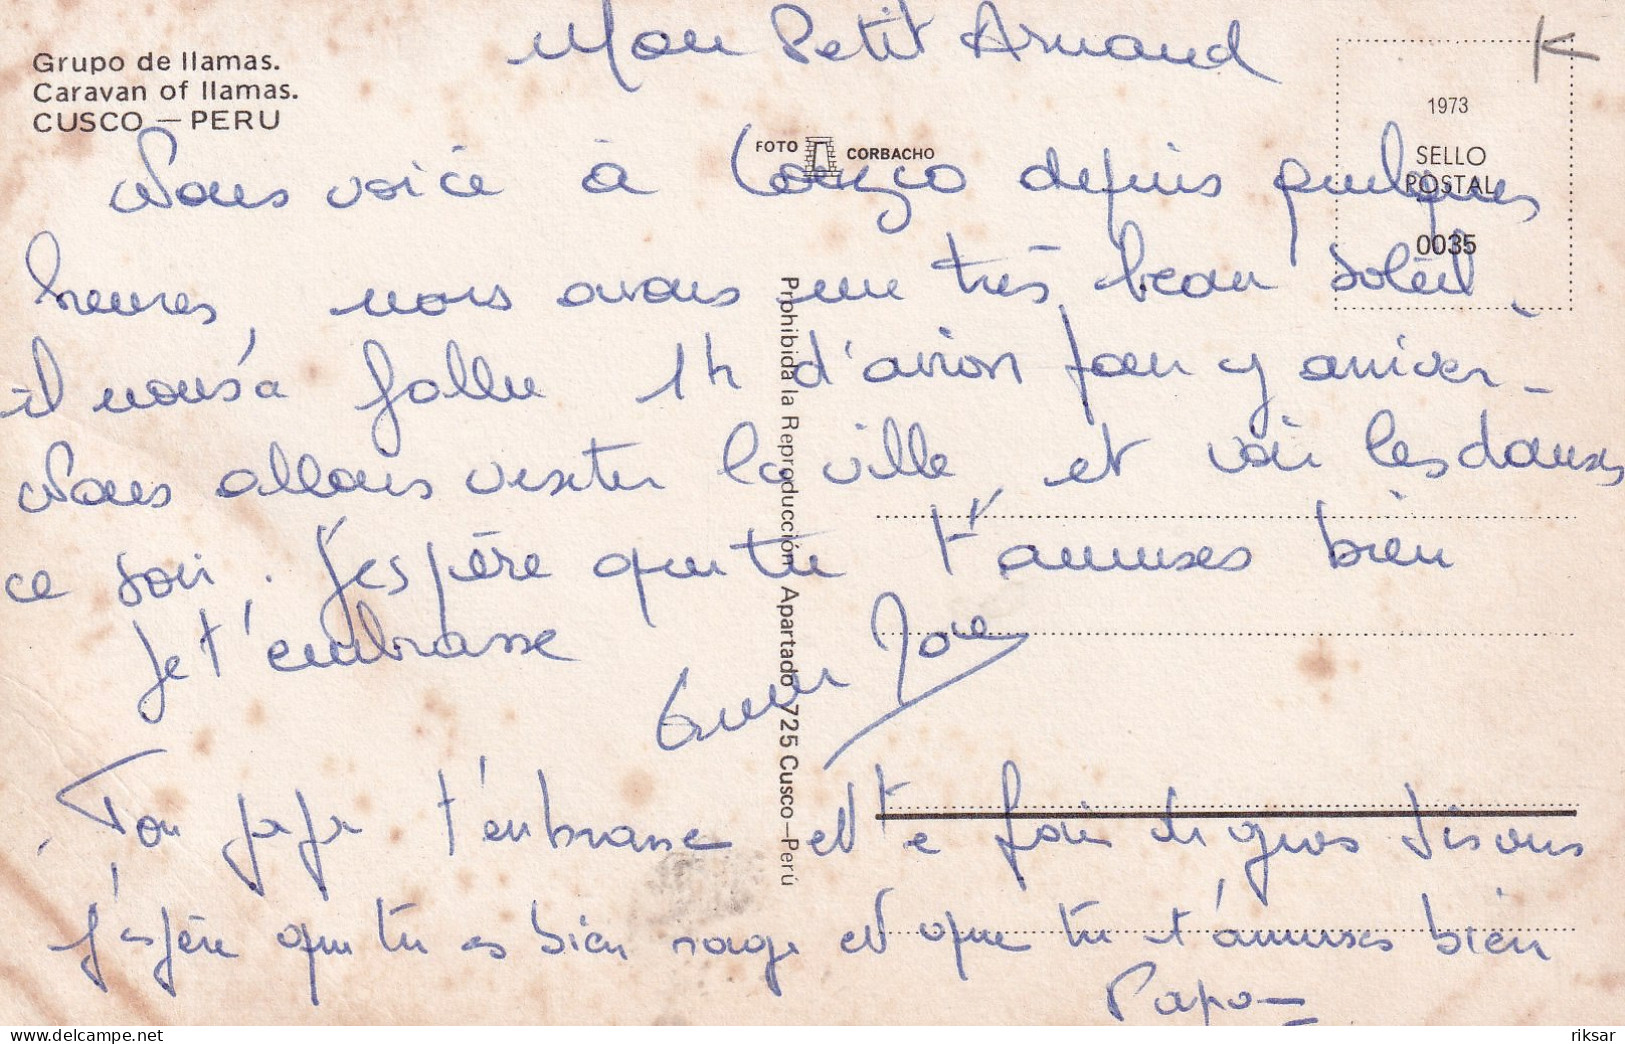 Grupo de llamas.
Caravan of llamas.
CUSCO — PERU
Mon Petit Arnaud
1973
SELLO
POSTAL
0035
FOTO CORBACHO
Nous voici à Couzco depuis quelques
heures, nous avons un très beau soleil.
il nous a fallu 1h d'avion pour y arriver -
Nous allons visiter la ville et voir les danses
ce soir. J'espère que tu t'amuses bien
Je t'embrasse
Prohibida la Reproducción Apartado 725 Cusco—Perú
Ton papa t'embrasse et te fais de gros bisous
J'espère que tu es bien sage et que tu t'amuses bien
Papa
riksar